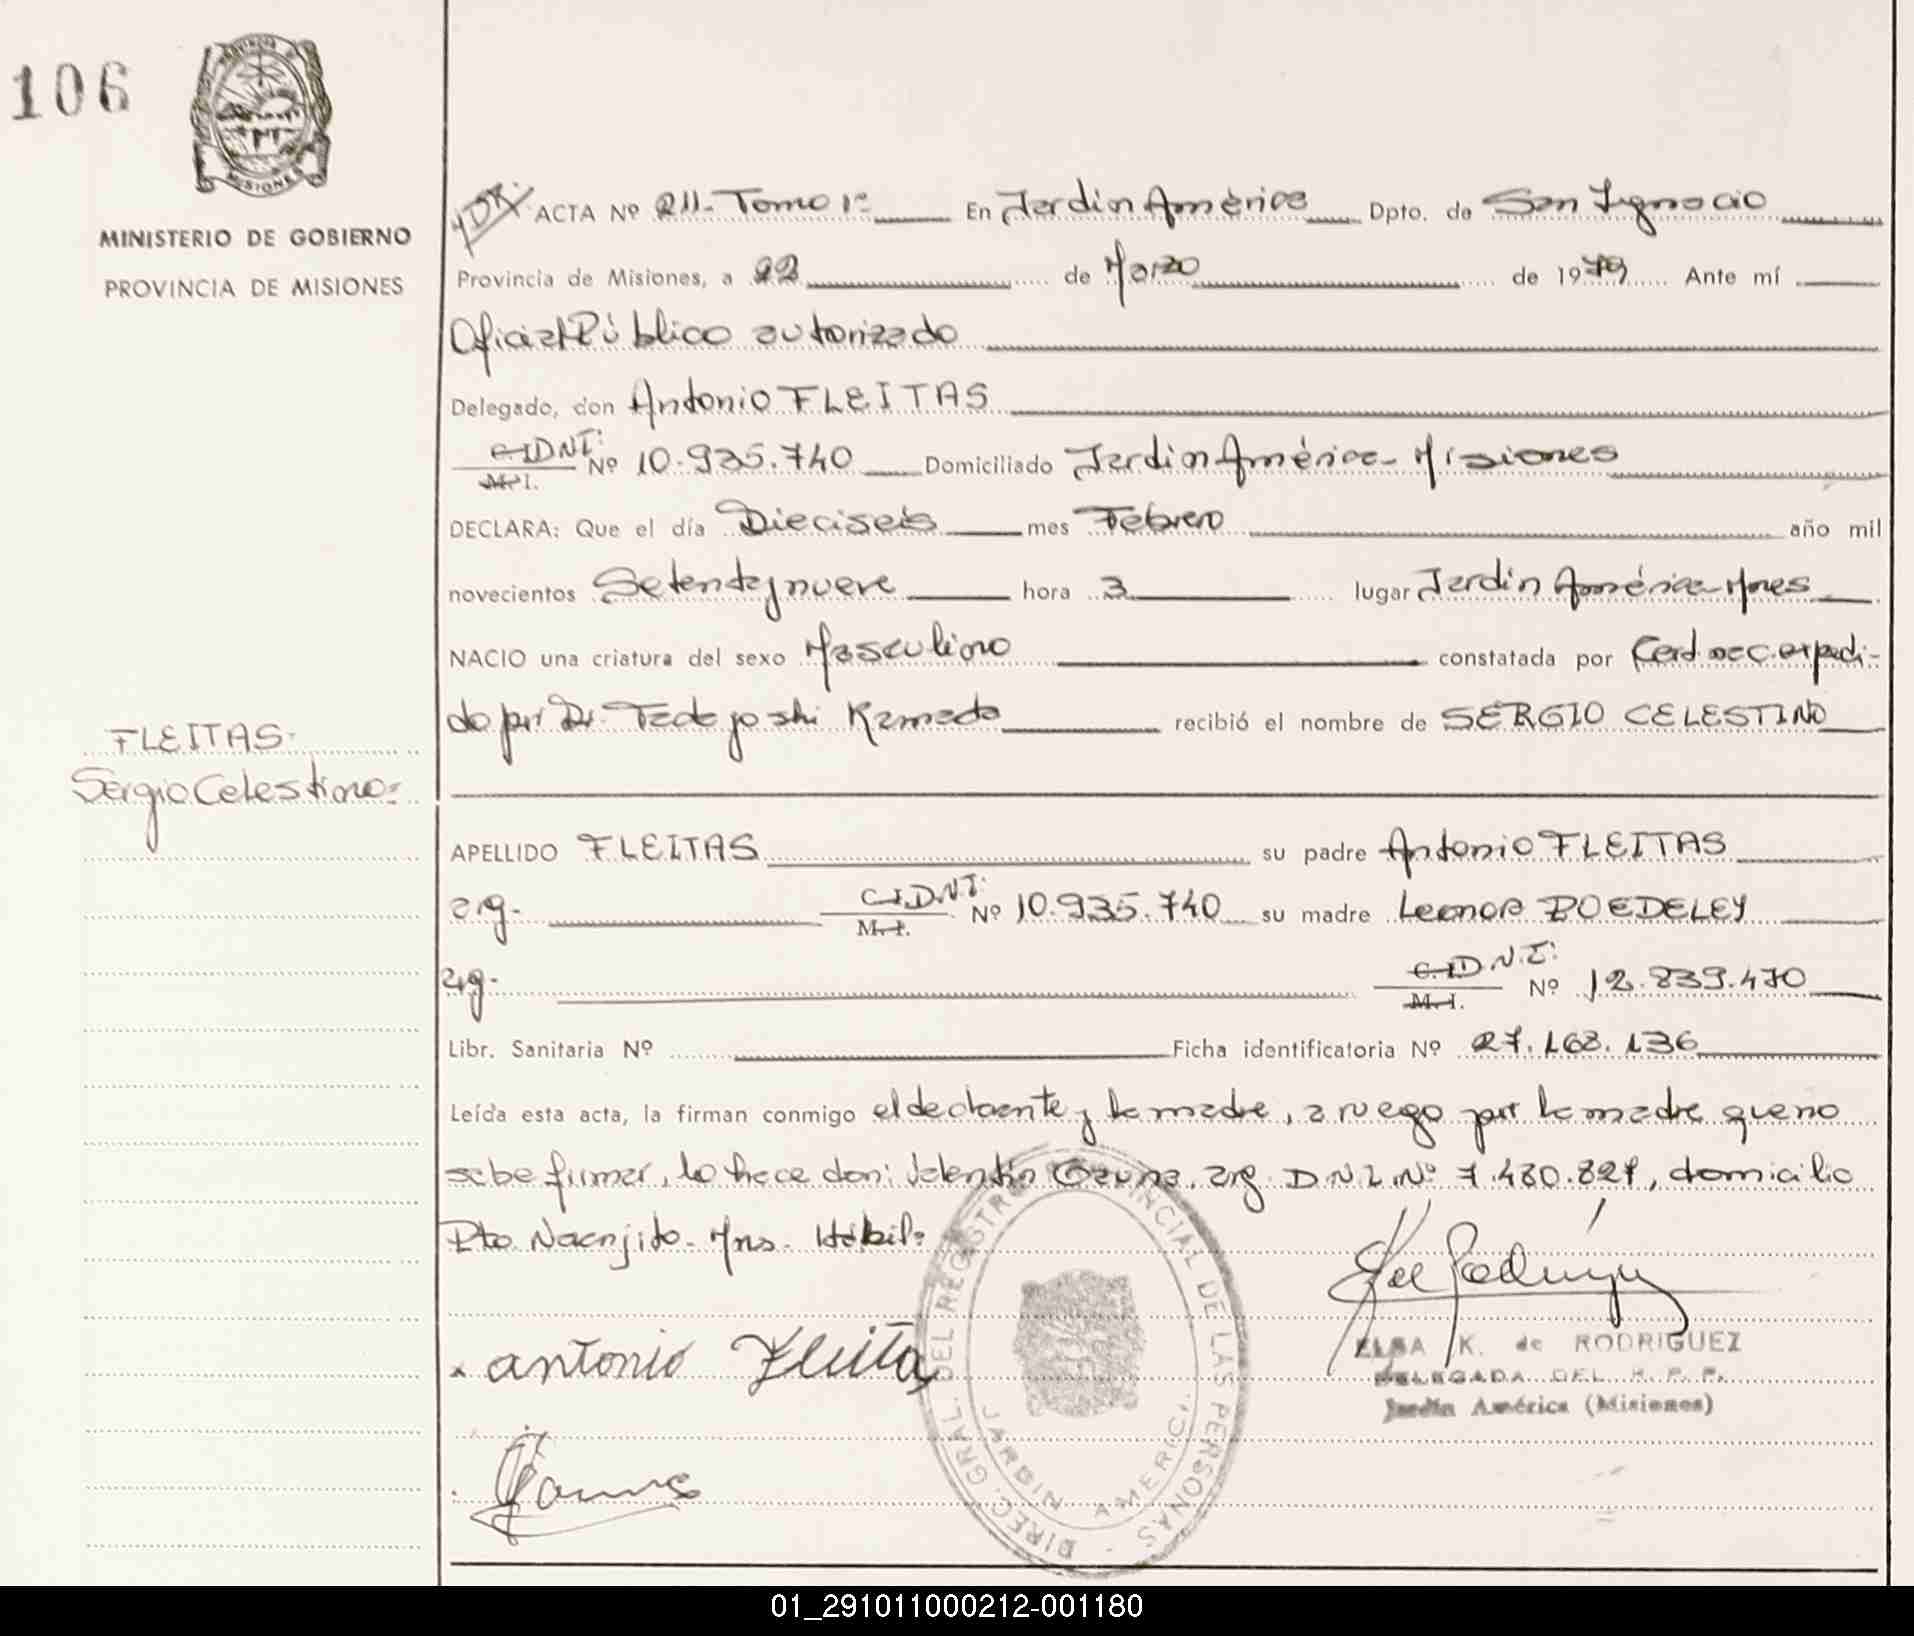 106
PROVINCIA DE
MISIONES
MINISTERIO DE GOBIERNO
PROVINCIA DE MISIONES
ACTA Nº 211- Tomo 1º En Jardín América Dpto. de San Ignacio
Provincia de Misiones, a 22 de Marzo de 1979 Ante mí
Oficial Público autorizado
Delegado, don Antonio FLEITAS
C.I. D.N.I: M.I. Nº 10.935.740 Domiciliado Jardín América- Misiones
DECLARA: Que el día Dieciseis mes Febrero año mil
novecientos Setenta y nueve hora 3 lugar Jardín América-Mnes
NACIO una criatura del sexo Masculino constatada por Cert. nac. expedi-
do por Dr. Tadayoshi Kameda recibió el nombre de SERGIO CELESTINO
FLEITAS-
Sergio Celestino=
APELLIDO FLEITAS su padre Antonio FLEITAS
arg- C.I. D.N.I: M.I. Nº 10.935.740 su madre Leonor BOEDELEY
arg- C.I. D.N.I: M.I. Nº 12.839.470
Libr. Sanitaria Nº Ficha identificatoria Nº 27.168.136
Leída esta acta, la firman conmigo el declarante y la madre, a ruego por la madre que no
sabe firmar, lo hace don: Valentín Ozuna, arg. D.N.I. Nº 7.480.827, domicilio
Pto. Naranjito- Mns- Hábil=
antonio Fleita
ELSA K. de RODRIGUEZ
DELEGADA DEL R. P. P.
Jardín América (Misiones)
DIREC. GRAL. DEL REGISTRO PROVINCIAL DE LAS PERSONAS -
JARDIN AMERICA
01_291011000212-001180